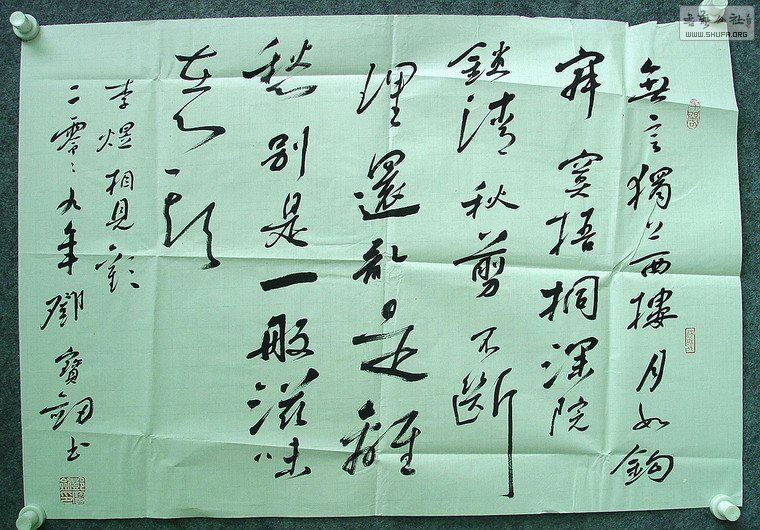 無言獨上西樓月如鉤
寂寞梧桐深院
鎖清秋剪不斷
理還亂是離
愁別是一般滋味
在心頭
李煜相見歡
二零〻九年鄧寶劍书
WWW.SHUFA.ORG